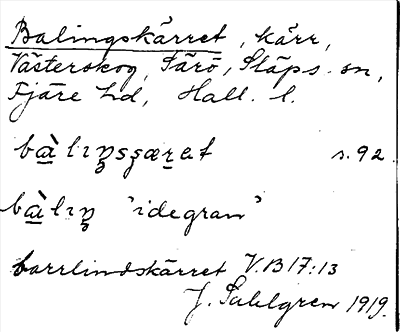 Balingskärret, kärr,
Västerskog, Särö, Släps sn,
Fjäre hd, Hall. l.
bàlıŋsʂæret s. 92
bàlıŋ 'idegran'
barrlindskärret V. B 17:13
J. Sahlgren 1919.